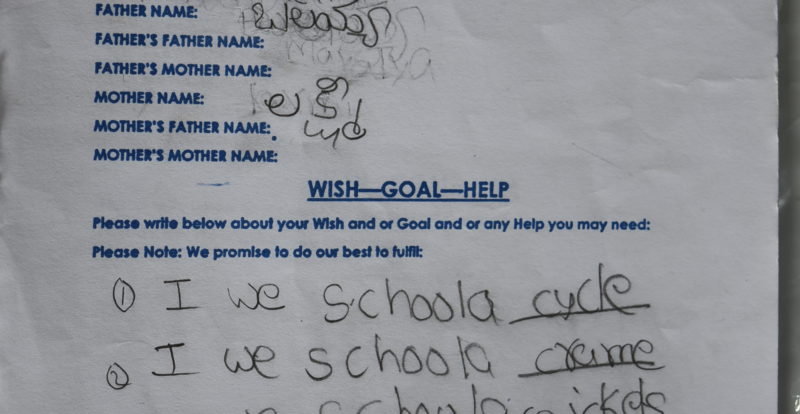 FATHER NAME:
FATHER'S FATHER NAME:
FATHER'S MOTHER NAME:
MOTHER NAME: ಲಕ್ಷ್ಮೀ
MOTHER'S FATHER NAME:
MOTHER'S MOTHER NAME:
WISH—GOAL—HELP
Please write below about your Wish and or Goal and or any Help you may need:
Please Note: We promise to do our best to fulfil:
① I we schoola cycle
② I we schoola crame
schoola